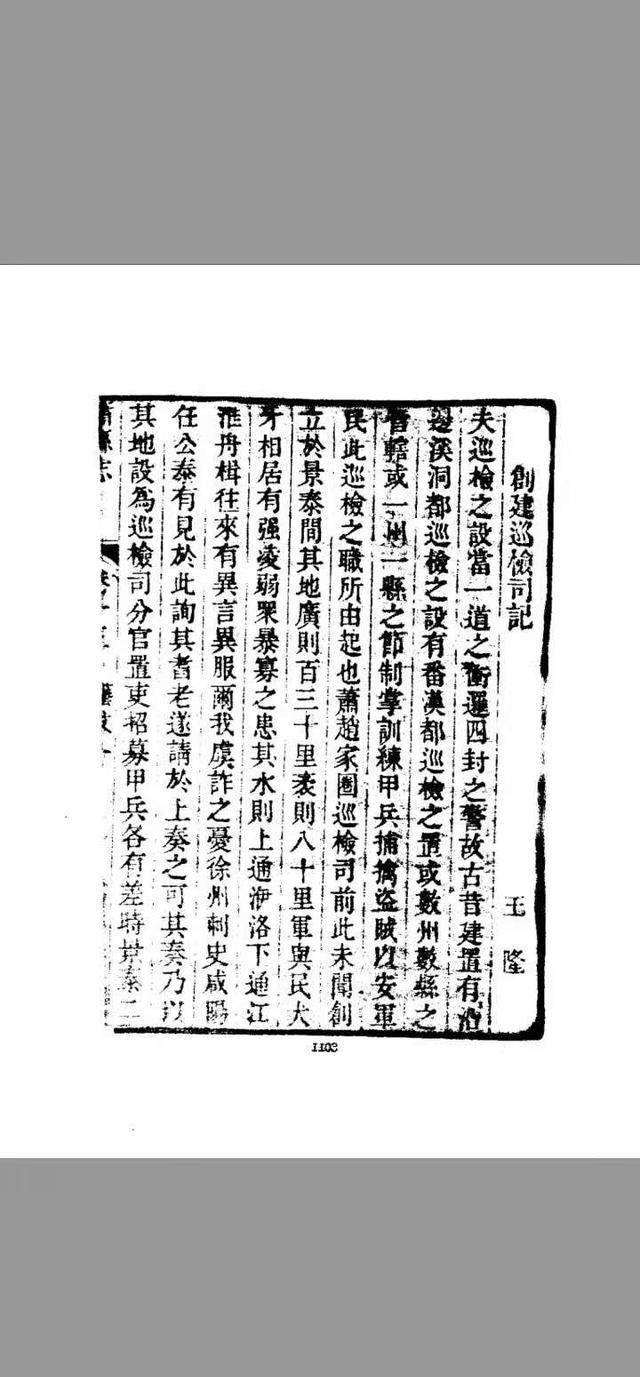 創建巡檢司記
王隆
夫巡檢之設當一道之衝邏四封之警故古昔建置有沿
邊溪洞都巡檢之設有番漢都巡檢之置或數州數縣之
管轄或一州一縣之節制掌訓練甲兵捕擒盜賊以安軍
民此巡檢之職所由起也蕭趙家圈巡檢司前此未聞創
立於景泰間其地廣則百三十里袤則八十里軍與民犬
牙相居有强凌弱眾暴寡之患其水則上通伊洛下通江
淮舟楫往來有異言異服爾我虞詐之憂徐州刺史咸陽
任公泰有見於此詢其耆老遂請於上奏之可其奏乃以
其地設為巡檢司分官置吏招募甲兵各有差時景泰二
蕭縣志
1102